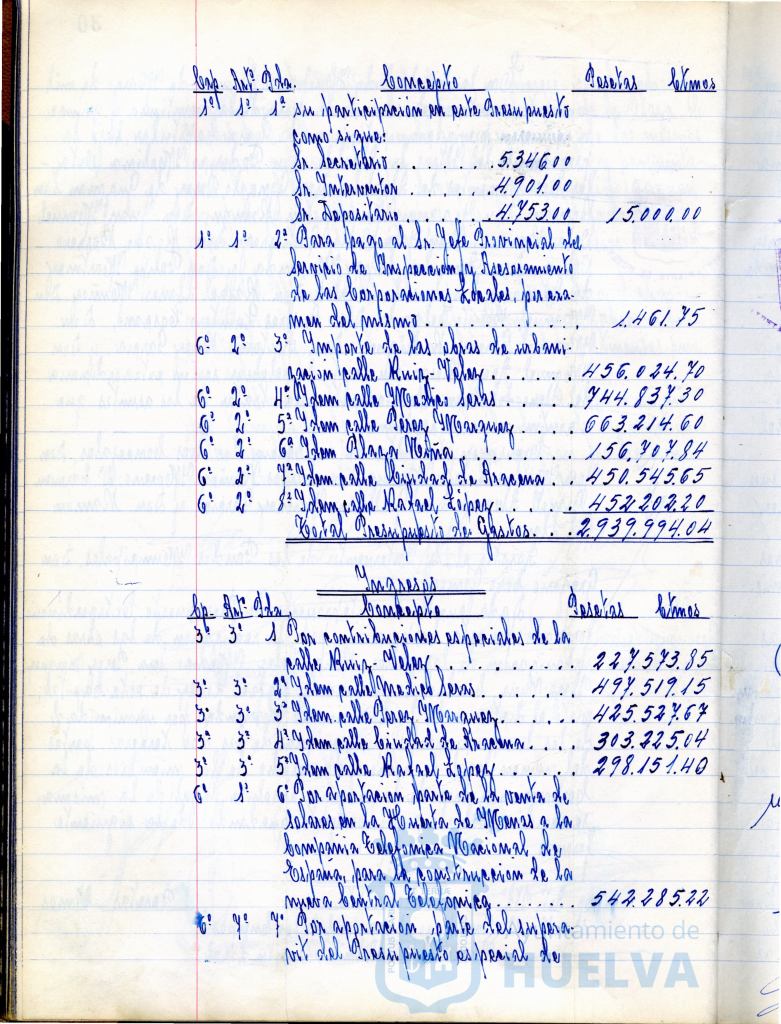 Cap. Artº Pda. Concepto Pesetas Ctmos
1º 1º 1ª su participación en este Presupuesto
como sigue:
Sr. Secretario . . . . . . . 5.346.00
Sr. Interventor . . . . . . 4.901.00
Sr. Depositario . . . . . . 4.753.00 15.000.00
1º 1º 2ª Para pago al Sr. Jefe Provincial del
Servicio de Inspección y Asesoramiento
de las Corporaciones Locales, por exa-
men del mismo . . . . . . . . . 1.461.75
6º 2º 3ª Importe de las obras de urbani-
zación calle Ruiz-Velez . . . . . . 456.024.70
6º 2º 4ª Idem calle Medico Seras . . . . . 744.837.30
6º 2º 5ª Idem calle Perez Marquez . . . . 663.214.60
6º 2º 6ª Idem Plaza Niña . . . . . . . 156.707.84
6º 2º 7ª Idem calle Ciudad de Aracena . . . 450.545.65
6º 2º 8ª Idem calle Rafael López . . . . . 452.202.20
Total Presupuesto de Gastos . . . 2.939.994.04
Ingresos
Cp. Artº Pda Concepto Pesetas Ctmos
3º 3º 1 Por contribuciones especiales de la
calle Ruiz-Velez . . . . . . . . 227.573.85
3º 3º 2ª Idem calle Medico Seras . . . . . 497.519.15
3º 3º 3ª Idem calle Perez Marquez . . . . 425.527.67
3º 3º 4ª Idem calle Ciudad de Aracena . . . 303.225.04
3º 3º 5ª Idem calle Rafael Lopez . . . . . 298.151.40
6º 1º 6ª Por aportación parte de la venta de
solares en la Huerta de Menas a la
Compañia Telefonica Nacional de
España, para la construcción de la
nueva Central Telefonica . . . . . . 542.285.22
6º 7º 7º Por aportación parte del supera-
vit del Presupuesto especial de
Ayuntamiento de
HUELVA